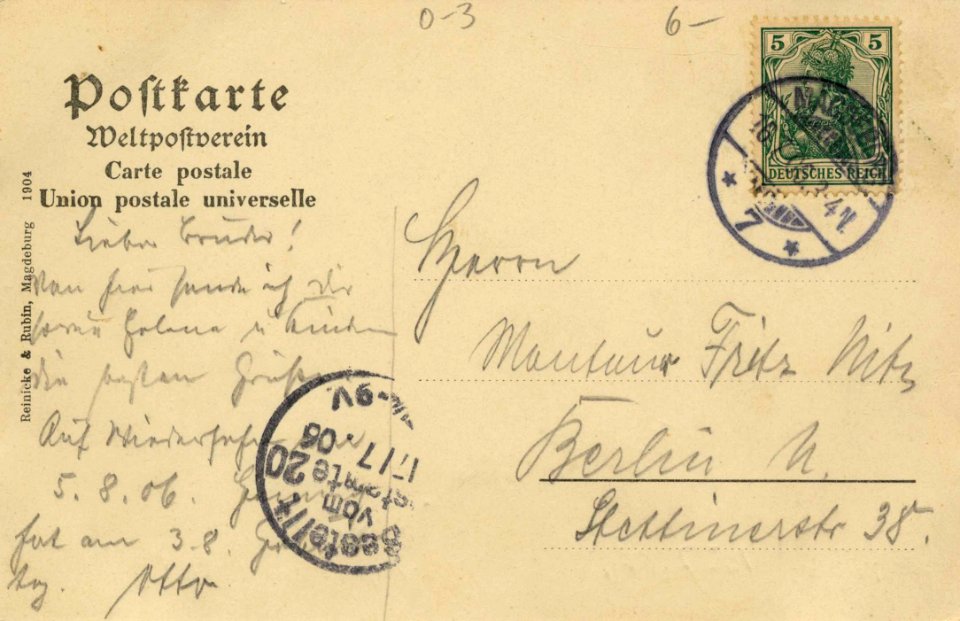 0-3
6-
5 5
DEUTSCHES REICH
Postkarte
Weltpostverein
Carte postale
Union postale universelle
Reinicke & Rubin, Magdeburg 1904
Lieber Bruder!
Von hier sende ich dir
sowie Helene u Kinder
die besten Grüße
Auf Wiedersehen
5. 8. 06.
hat am 3.8.
Otto
Herrn
Monteur Fritz Nitz
Berlin N.
Stettinerstr 38.
Bestellt
vom
Postamte 20
17/7 06
-9V.
MAGDEBURG
7